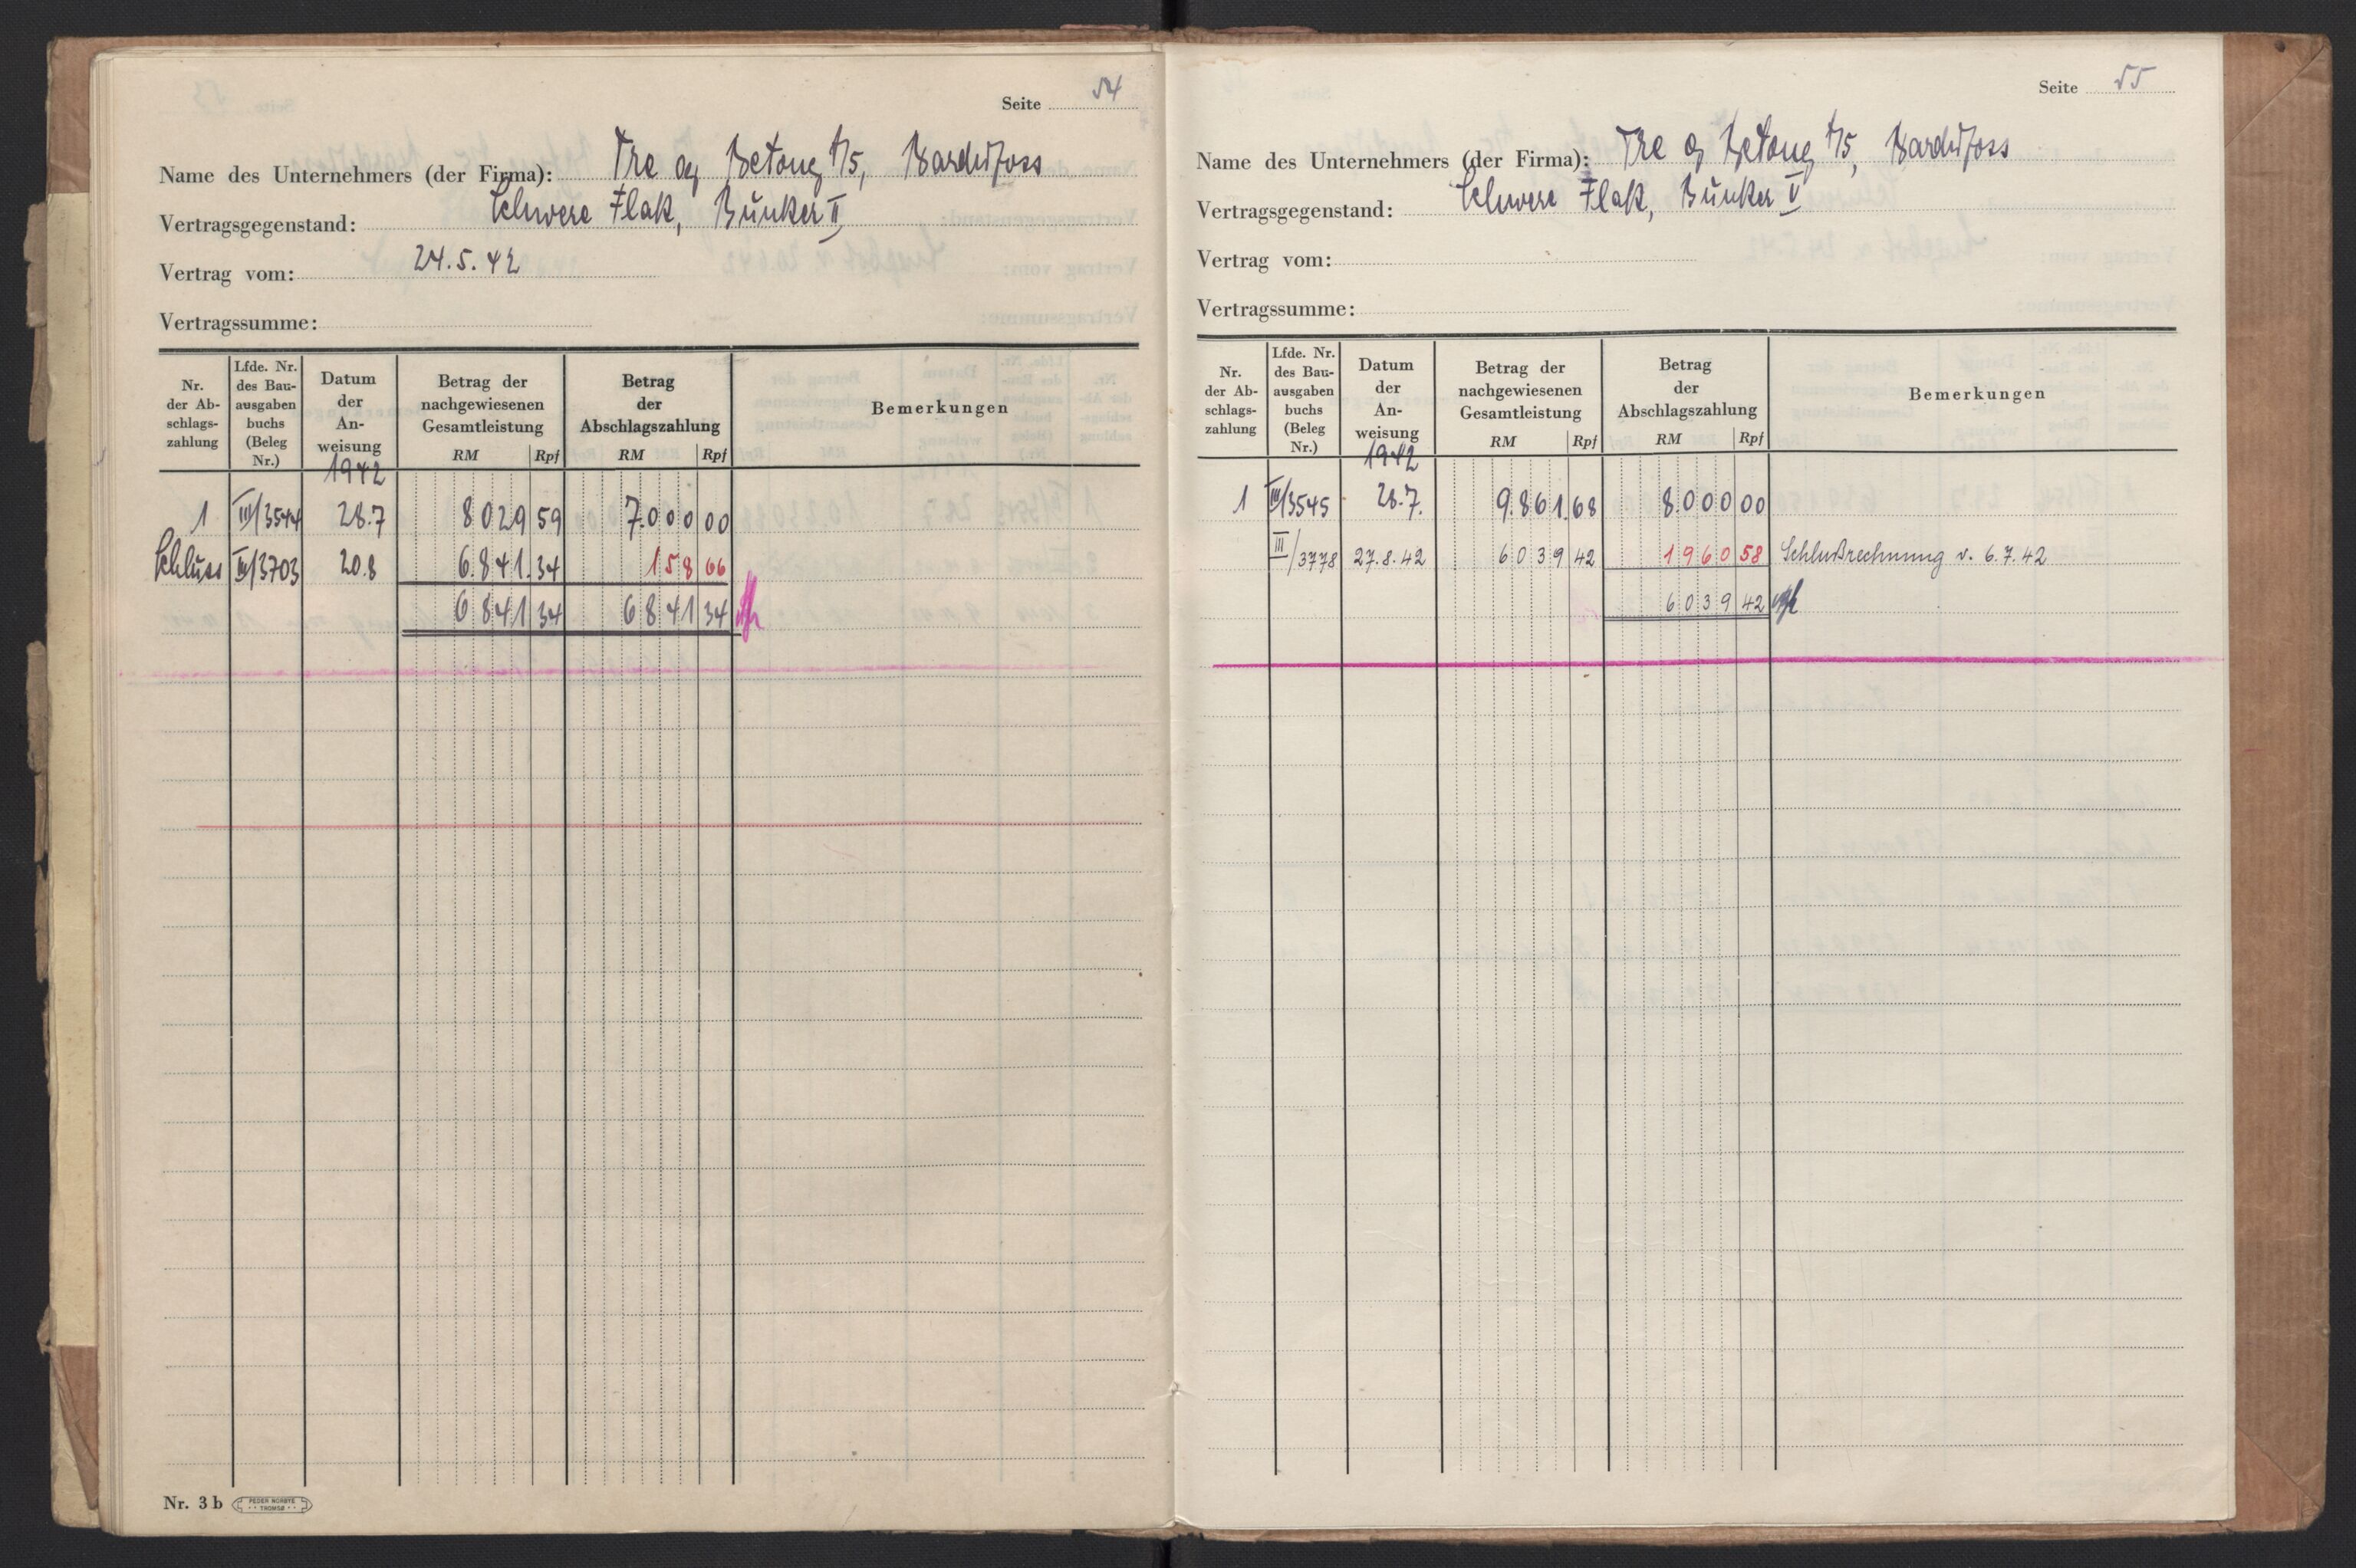 Seite 54
Name des Unternehmers (der Firma): Tre og Betong A/S, Bardufoss
Vertragsgegenstand: Schwere Flak, Bunker II
Vertrag vom: 24.5.42
Vertragssumme:
Nr. der Ab-schlags-zahlung | Lfde. Nr. des Bau-ausgaben buchs (Beleg Nr.) | Datum der An-weisung | Betrag der nachgewiesenen Gesamtleistung RM Rpf | Betrag der Abschlagszahlung RM Rpf | Bemerkungen
1942
1 III/3544 28.7 8029 59 7.000 00
Schluss III/3703 20.8 6.841.34 158 66
6841 34 6841 34
Nr. 3 b PEDER NORBYE TROMSØ
Seite 55
Name des Unternehmers (der Firma): Tre og Betong A/S, Bardufoss
Vertragsgegenstand: Schwere Flak, Bunker V
Vertrag vom:
Vertragssumme:
Nr. der Ab-schlags-zahlung | Lfde. Nr. des Bau-ausgaben buchs (Beleg Nr.) | Datum der An-weisung | Betrag der nachgewiesenen Gesamtleistung RM Rpf | Betrag der Abschlagszahlung RM Rpf | Bemerkungen
1942
1 III/3545 28.7. 9.861.68 8.000 00
III/3778 27.8.42 6039 42 1960 58 Schlußrechnung v. 6.7.42
6039 42